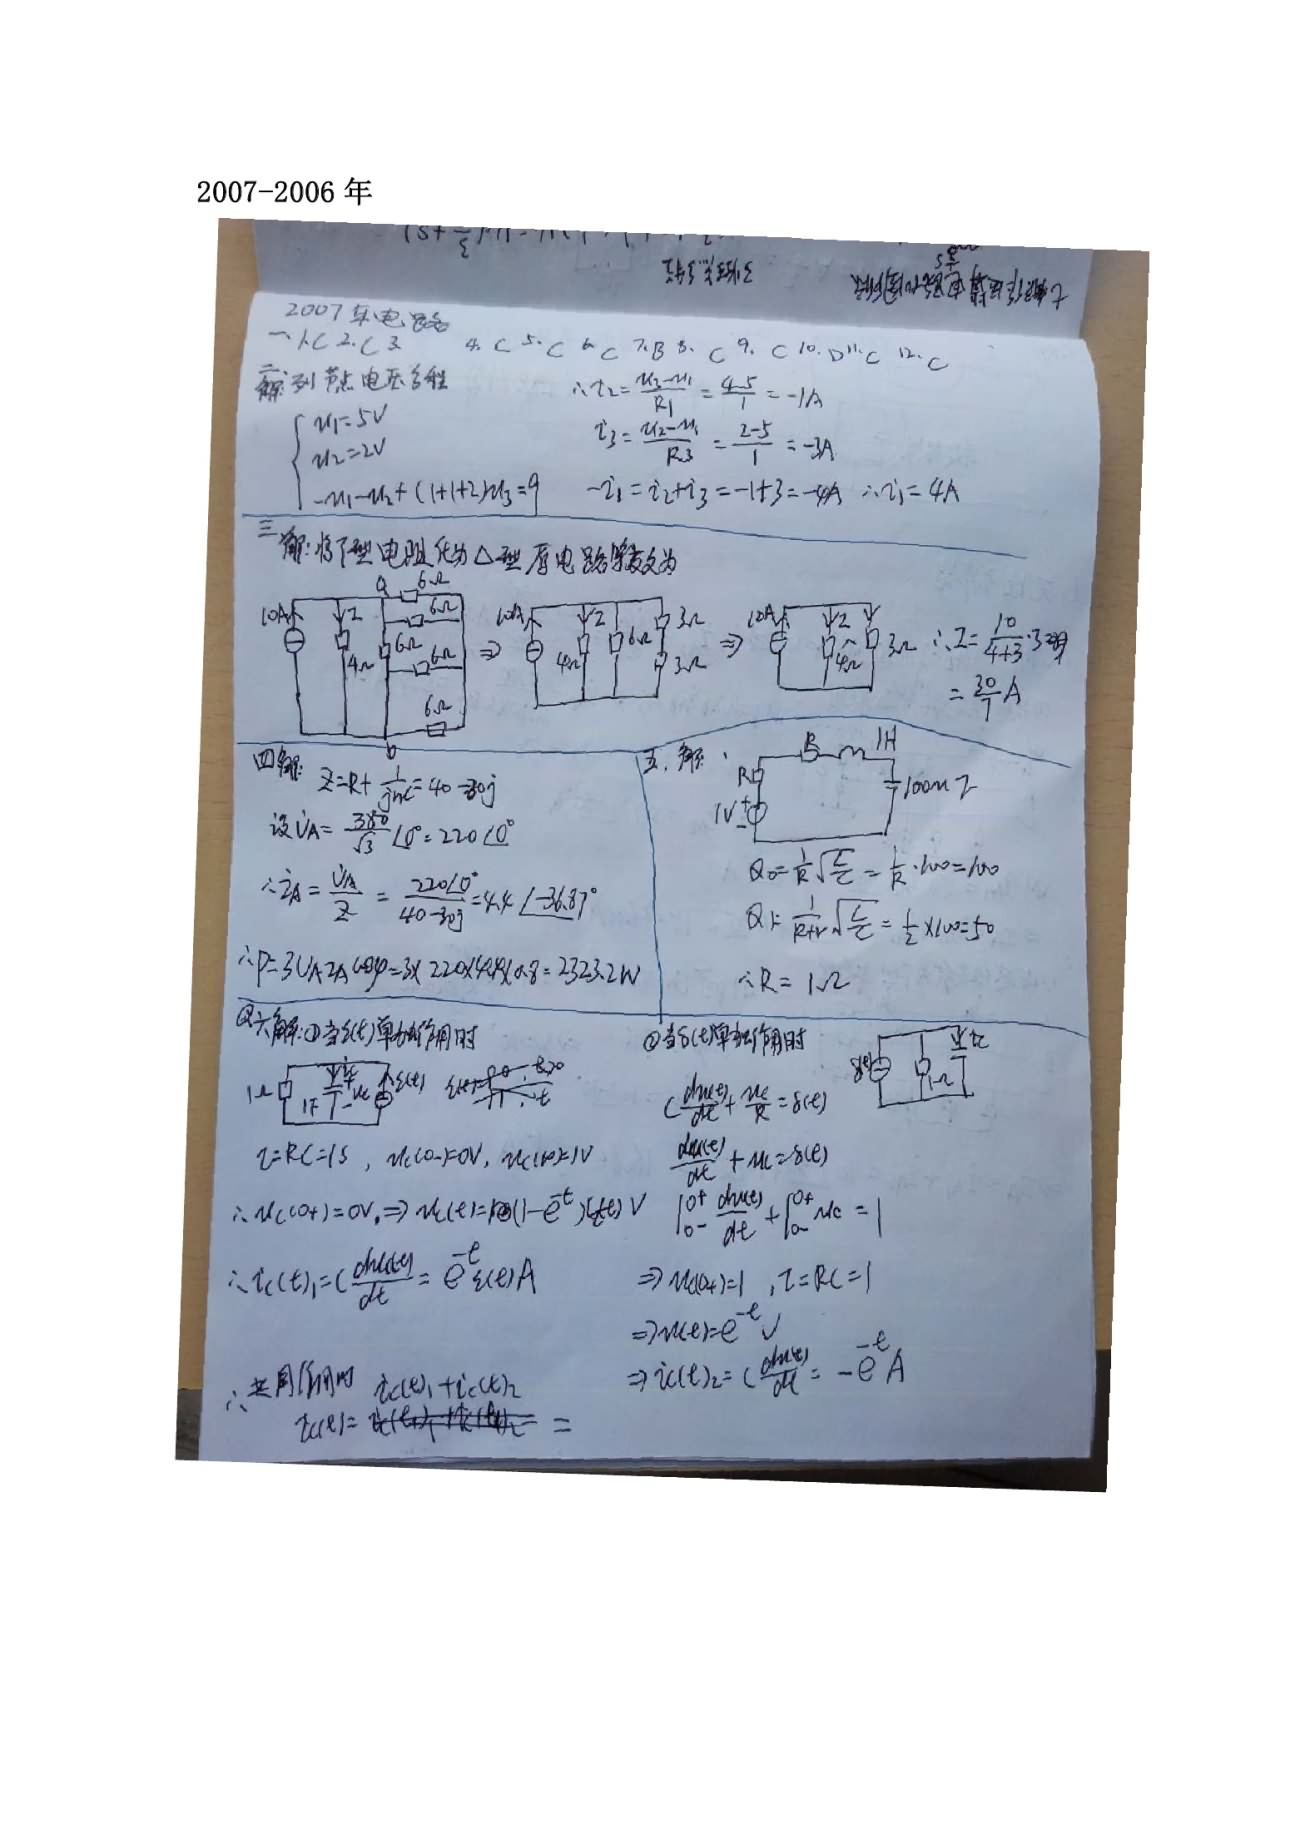 2007-2006 年
2007年电路
一、1.C 2.C 3. 4.C 5.C 6.C 7.B 8.C 9.C 10.D 11.C 12.C
二解:列节点电压方程
u1=5V
u2=2V
-u1-u2+(1+1+2)u3=9
∴i2=(u3-u1)/R1=(4-5)/1=-1A
i3=(u2-u1)/R3=(2-5)/1=-3A
-i1=i2+i3=-1+3=-4A ∴i1=4A
三解:将Y型电阻化为△型 原电路等效为
a 6Ω
10A I 6Ω
4Ω 6Ω 6Ω
6Ω
b
⇒ 10A I 6Ω 3Ω
4Ω 3Ω
⇒ 10A I 3Ω
4Ω
∴I=10/(4+3)·3
=30/7 A
四解: Z=R+1/jwc=40-30j
设U̇A=380/√3∠0°=220∠0°
∴İA=U̇A/Z=220∠0°/(40-30j)=4.4∠-36.87°
∴P=3UAIAcosφ=3×220×4.4×0.8=2323.2W
五、解: R 1H
R 100u
1V + -
Q0=1/R√(L/C)=1/R·100=100
Q1=1/(R+r)√(L/C)=1/2×100=50
∴R=1Ω
六解:①当ε(t)单独作用时
1Ω 1F ic uc ε(t)
τ=RC=1S, uc(0-)=0V, uc(∞)=1V
∴uc(0+)=0V,⇒uc(t)=(1-e^-t)ε(t)V
∴ic(t)1=C duc(t)/dt=e^-t ε(t)A
②当δ(t)单独作用时
δ(t) 1Ω ic
C duc(t)/dt+uc/R=δ(t)
duc(t)/dt+uc=δ(t)
∫0-0+ duc(t)/dt+∫0-0+ uc=1
⇒uc(0+)=1,τ=RC=1
⇒u(t)=e^-t V
⇒ic(t)2=C duc(t)/dt=-e^-t A
∴共同作用时 ic(t)1+ic(t)2
ic(t)= =